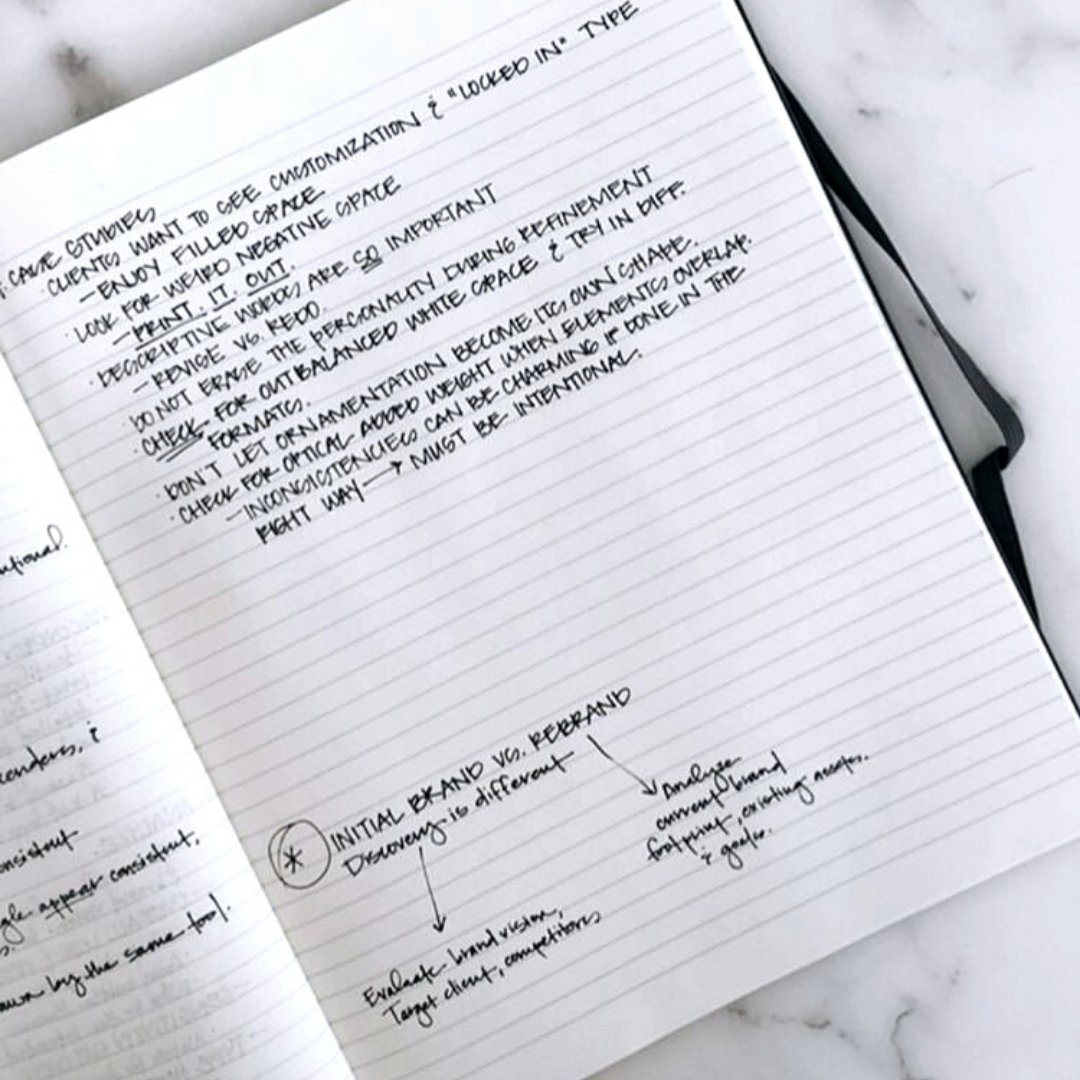 CASE STUDIES
· CLIENTS WANT TO SEE CUSTOMIZATION & "LOCKED IN" TYPE
- ENJOY FILLED SPACE
· LOOK FOR WEIRD NEGATIVE SPACE
- PRINT. IT. OUT.
· DESCRIPTIVE WORDS ARE SO IMPORTANT
- REVISE VS. REDO.
· DO NOT ERASE THE PERSONALITY DURING REFINEMENT
· CHECK FOR OUTBALANCED WHITE SPACE & TRY IN DIFF.
FORMATS.
· DON'T LET ORNAMENTATION BECOME ITS OWN SHAPE.
· CHECK FOR OPTICAL ADDED WEIGHT WHEN ELEMENTS OVERLAP.
- INCONSISTENCIES CAN BE CHARMING IF DONE IN THE
RIGHT WAY → MUST BE INTENTIONAL.
* INITIAL BRAND VS. REBRAND
Discovery is different
Analyze
current brand
footprint, existing assets,
& goals.
Evaluate brand vision,
Target client, competitors
&
appear consistent,
by the same tool.